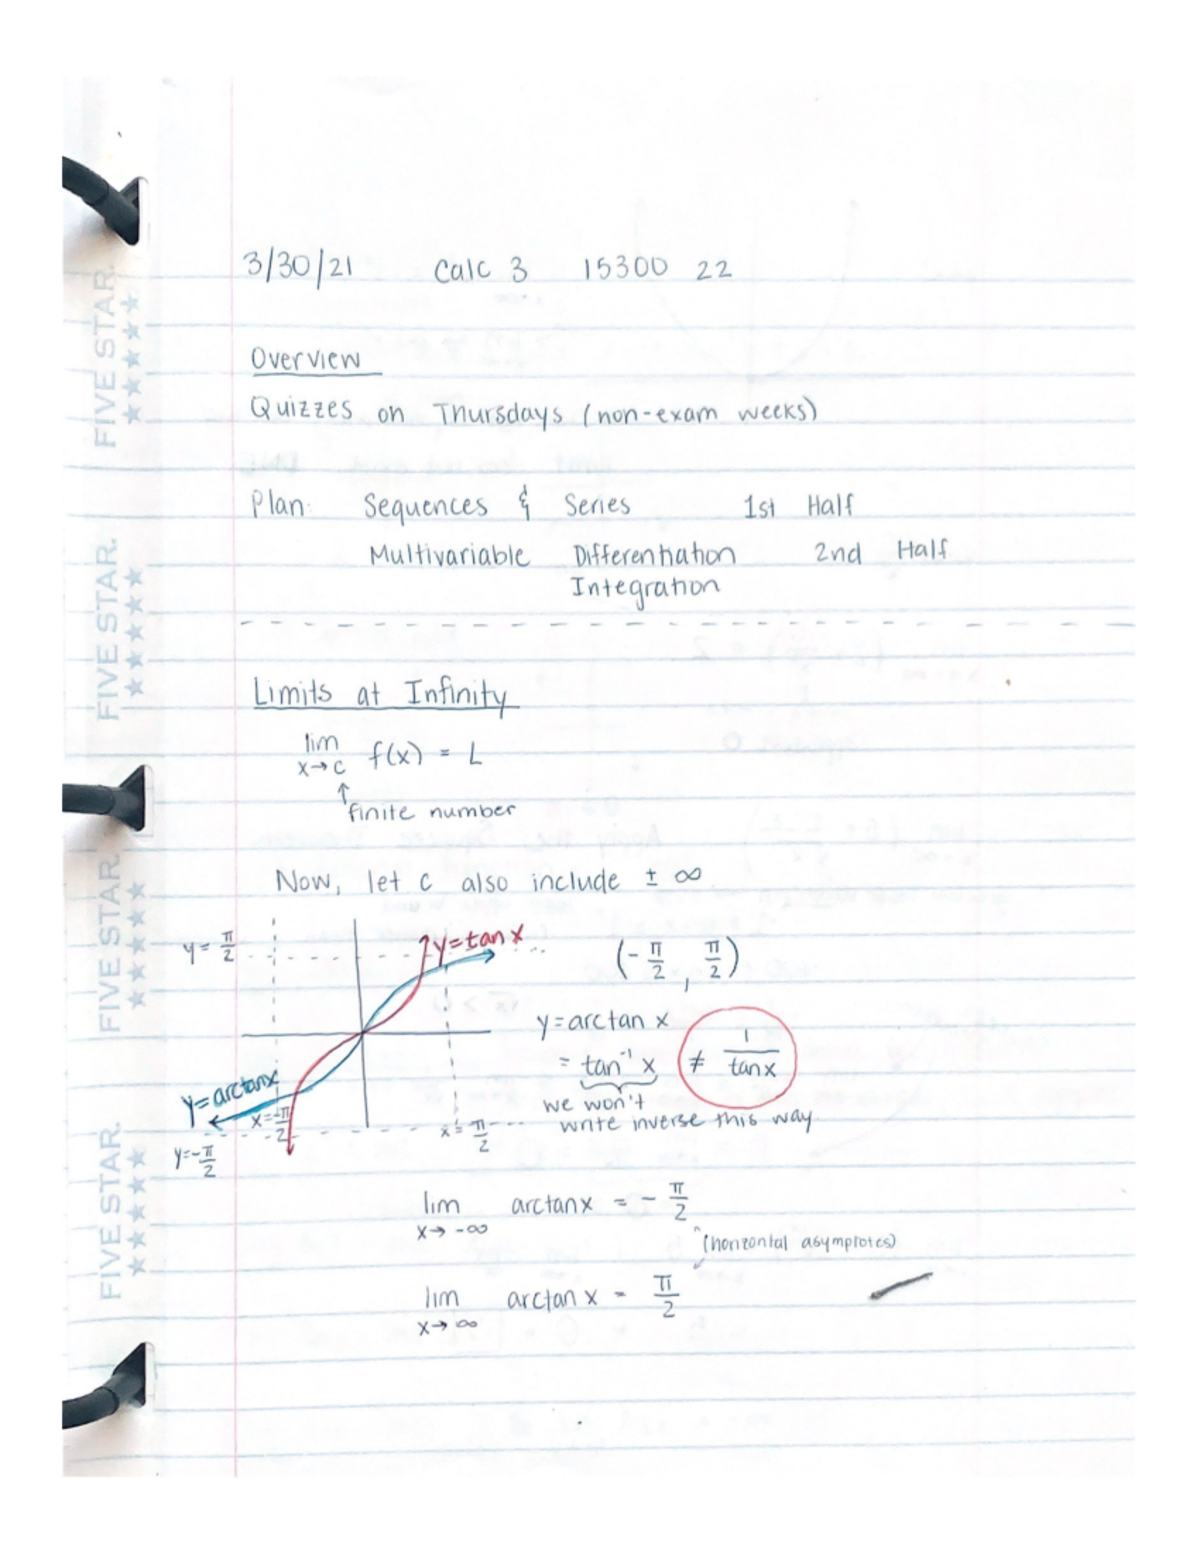 3/30/21 Calc 3 15300 22
Overview
Quizzes on Thursdays (non-exam weeks)
Plan: Sequences & Series 1st Half
Multivariable Differentiation 2nd Half
Integration
Limits at Infinity
lim x→c f(x) = L
↑
finite number
Now, let c also include ± ∞
y = π/2
y=tan x
(-π/2, π/2)
y=arctan x
= tan⁻¹ x ≠ 1/tanx
we won't
write inverse this way
y=arctanx
x=-π/2
x = π/2
y=-π/2
lim x→ -∞ arctanx = - π/2
(horizontal asymptotes)
lim x→ ∞ arctan x = π/2
FIVE STAR.
FIVE STAR.
FIVE STAR.
FIVE STAR.